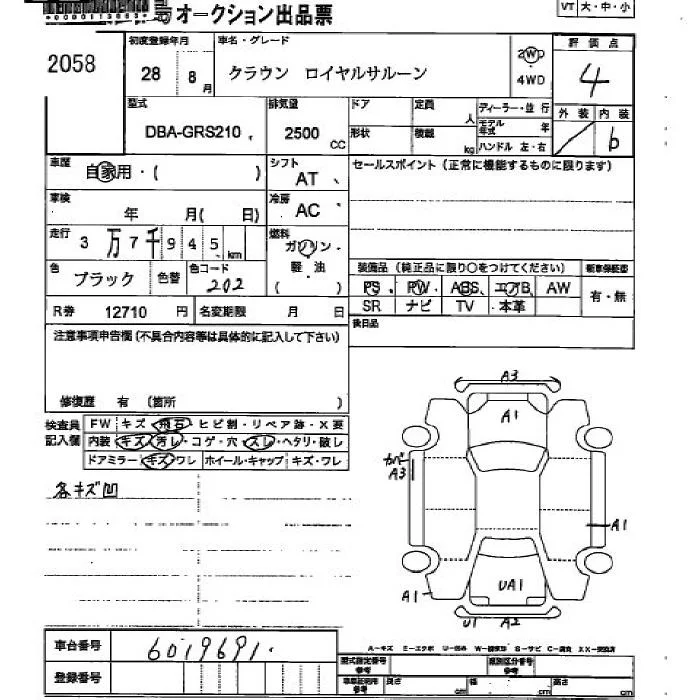 オークション出品票
VT 大・中・小
2058
初度登録年月
28 8月
車名・グレード
クラウン ロイヤルサルーン
2WD
4WD
評価点
4
外装 内装
b
型式
DBA-GRS210
排気量
2500 CC
ドア
定員 人
形状
積載 kg
ディーラー・並行
モデル年式 年
ハンドル 左・右
車歴
自家用・( )
シフト
AT
セールスポイント (正常に機能するものに限ります)
車検
年 月( 日)
冷房
AC
走行
3万7千945 km
燃料
ガソリン・
軽・油
( )
色
ブラック
色替
色コード
202
装備品 (純正品に限り○をつけてください)
新車保証書
PS PW ABS エアB AW
SR ナビ TV 本革
有・無
R券 12710 円
名変期限 月 日
後日品
注意事項申告欄(不具合内容等は具体的に記入して下さい)
修復歴 有 (箇所 )
検査員
記入欄
FW キズ・飛石・ヒビ割・リペア跡・X要
内装 キズ・汚レ・コゲ・穴・スレ・ヘタリ・破レ
ドアミラー キズ・ワレ ホイール・キャップ キズ・ワレ
各キズ凹
A3
A1
カバー
A3
A1
UA1
A1
U1 A2
車台番号
6019691
登録番号
A-キズ E-エクボ U-凹み W-補修跡 S-サビ C-腐食 XX-交換済
型式指定番号
類別区分番号
長さ cm 幅 cm 高さ cm